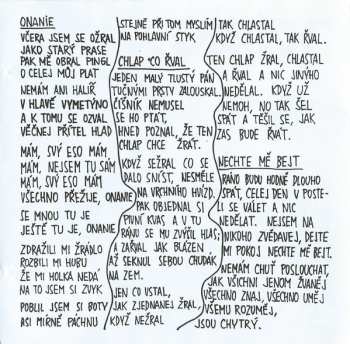 ONANIE
VČERA JSEM SE OŽRAL
JAKO STARÝ PRASE
PAK MĚ OBRAL PINGL
O CELEJ MŮJ PLAT
NEMÁM ANI HALÍŘ
V HLAVĚ VYMETÝNO
A K TOMU SE OZVAL
VĚČNEJ PŘÍTEL HLAD
MÁM, SVÝ ESO MÁM
MÁM, NEJSEM TU SÁM
MÁM, SVÝ ESO MÁM
VŠECHNO PŘEŽIJE, ONANIE
SE MNOU TU JE
JEŠTĚ TU JE, ONANIE
ZDRAŽILI MI ŽRÁDLO
ROZBILI MI HUBU
ŽE MI HOLKA NEDÁ
NA TO JSEM SI ZVYK
POBLIL JSEM SI BOTY
ASI MÍRNĚ PÁCHNU
STEJNĚ PŘI TOM MYSLÍM
NA POHLAVNÍ STYK
CHLAP CO ŘVAL
JEDEN MALÝ TLUSTÝ PÁN
TUČNÝMI PRSTY ZALOUSKAL
ČÍŠNÍK NEMUSEL
SE HO PTÁT,
HNED POZNAL, ŽE TEN
CHLAP CHCE ŽRÁT.
KDYŽ SEŽRAL CO SE
DALO SNÍST, NESMĚLE
NA VRCHNÍHO HVÍZD.
PAK OBJEDNAL SI
PIVNÍ KVAS A V TU
RÁNU SE MU ZVÝČIL HLAS;
A ZAŘVAL JAK BLÁZEN
AŽ SEKNUL SEBOU CHUDÁK
NA ZEM.
JEN CO VSTAL,
JAK ZJEDNANEJ ŽRAL,
KDYŽ NEŽRAL
TAK CHLASTAL
KDYŽ CHLASTAL, TAK ŘVAL.
TEN CHLAP ŽRAL, CHLASTAL
A ŘVAL A NIC JINÝHO
NEDĚLAL. KDYŽ UŽ
NEMOH, NO TAK ŠEL
SPÁT A TĚŠIL SE, JAK
ZAS BUDE ŘVÁT.
NECHTE MĚ BEJT
RÁNO BUDU HODNĚ DLOUHO
SPÁT, CELEJ DEN V POSTE-
LI SE VÁLET A NIC
NEDĚLAT. NEJSEM NA
NIKOHO ZVĚDAVEJ, DEJTE
MI POKOJ NECHTE MĚ BEJT.
NEMÁM CHUŤ POSLOUCHAT,
JAK VŠICHNI JENOM ŽVANĚJ
VŠECHNO ZNAJ, VŠECHNO UMĚJ
VŠEMU ROZUMĚJ,
JSOU CHYTRÝ.